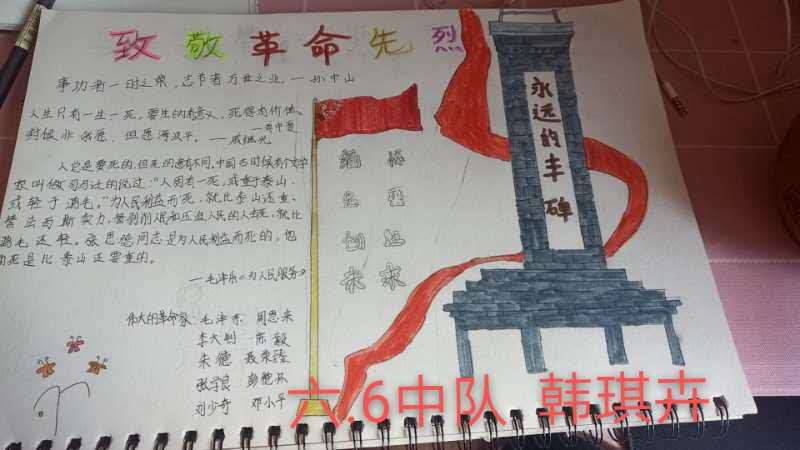 致敬革命先烈
事功者一时之荣，志节者万世之业。—孙中山
人生只有一生一死，要生的有意义，死得有价值。
—邓中夏
封候非我愿，但愿海波平。—戚继光
人总是要死的，但死的意有不同，中国古时候有个文学
家叫做司马迁的说过："人固有一死，或重于泰山，
或轻于鸿毛。"为人民利益而死，就比泰山还重，
替法西斯卖力，替剥削人民和压迫人民的人去死，就比
鸿毛还轻。张思德同志是为人民利益而死的，他
的死是比泰山还要重的。
—毛泽东《为人民服务》
伟大的革命家：毛泽东 周恩来
李大钊 陈毅
朱德 聂荣臻
张学良 彭德怀
刘少奇 邓小平
缅怀
先烈
创造
未来
永远的丰碑
六.6中队 韩琪卉